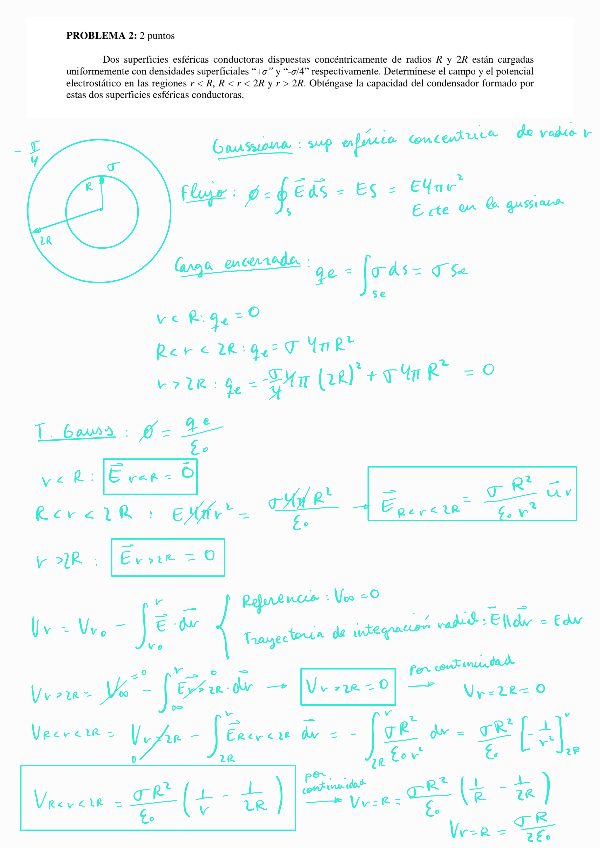 PROBLEMA 2: 2 puntos
Dos superficies esféricas conductoras dispuestas concéntricamente de radios R y 2R están cargadas
uniformemente con densidades superficiales “+σ” y “-σ/4” respectivamente. Determínese el campo y el potencial
electrostático en las regiones r < R, R < r < 2R y r > 2R. Obténgase la capacidad del condensador formado por
estas dos superficies esféricas conductoras.
Gaussiana : sup esférica concentrica de radio r
- σ/4
σ
R
2R
Flujo : ϕ = ∮s E⃗ ds⃗ = ES = E4πr²
E cte en la gussiana
Carga encerrada : qe = ∫se σ ds = σ Se
r < R : qe = 0
R < r < 2R : qe = σ 4π R²
r > 2R : qe = -σ/4 4π (2R)² + σ 4π R² = 0
T. Gauss : ϕ = qe/ε₀
r < R : E⃗ r<R = 0⃗
R < r < 2R : E4πr² = σ4πR²/ε₀ → E⃗ R<r<2R = σ R²/ε₀ r² u⃗r
r > 2R : E⃗ r>2R = 0
Vr = Vr₀ - ∫r₀^r E⃗ · dr⃗ { Referencia : V∞ = 0
Trayectoria de integración radial : E⃗ || dr⃗ = E dr
Vr>2R = V∞ =0 - ∫∞^r E⃗r>2R 0 · dr⃗ → Vr>2R = 0 → por continuidad Vr=2R = 0
VR<r<2R = Vr=2R 0 - ∫2R^r E⃗R<r<2R dr⃗ = - ∫2R^r σR²/ε₀r² dr = σR²/ε₀ [-1/r²]2R^r
VR<r<2R = σR²/ε₀ (1/r - 1/2R) → por continuidad Vr=R = σR²/ε₀ (1/R - 1/2R)
Vr=R = σR/2ε₀